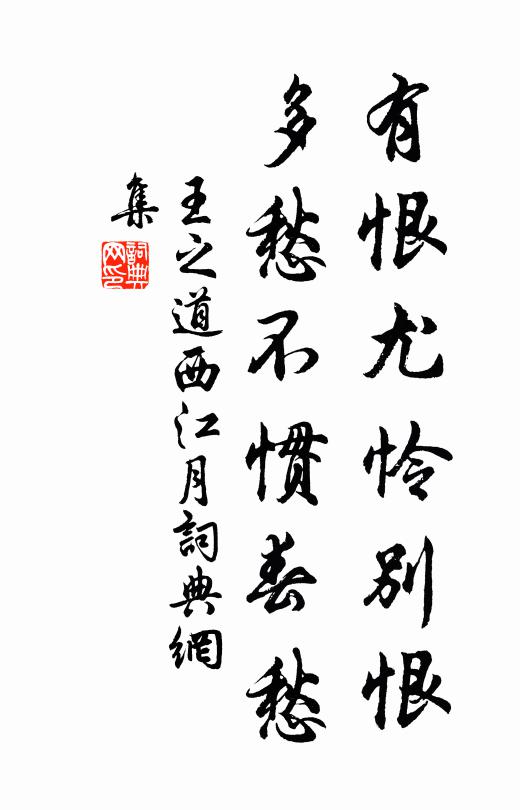 有恨尤怜别恨
多愁不惯春愁
王之道西江月詞典網
集
詞典
网印